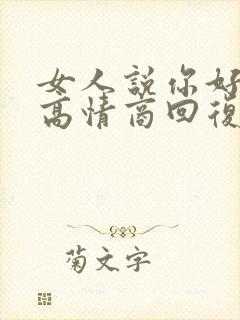 女人説你好
高情商回復
菊文字